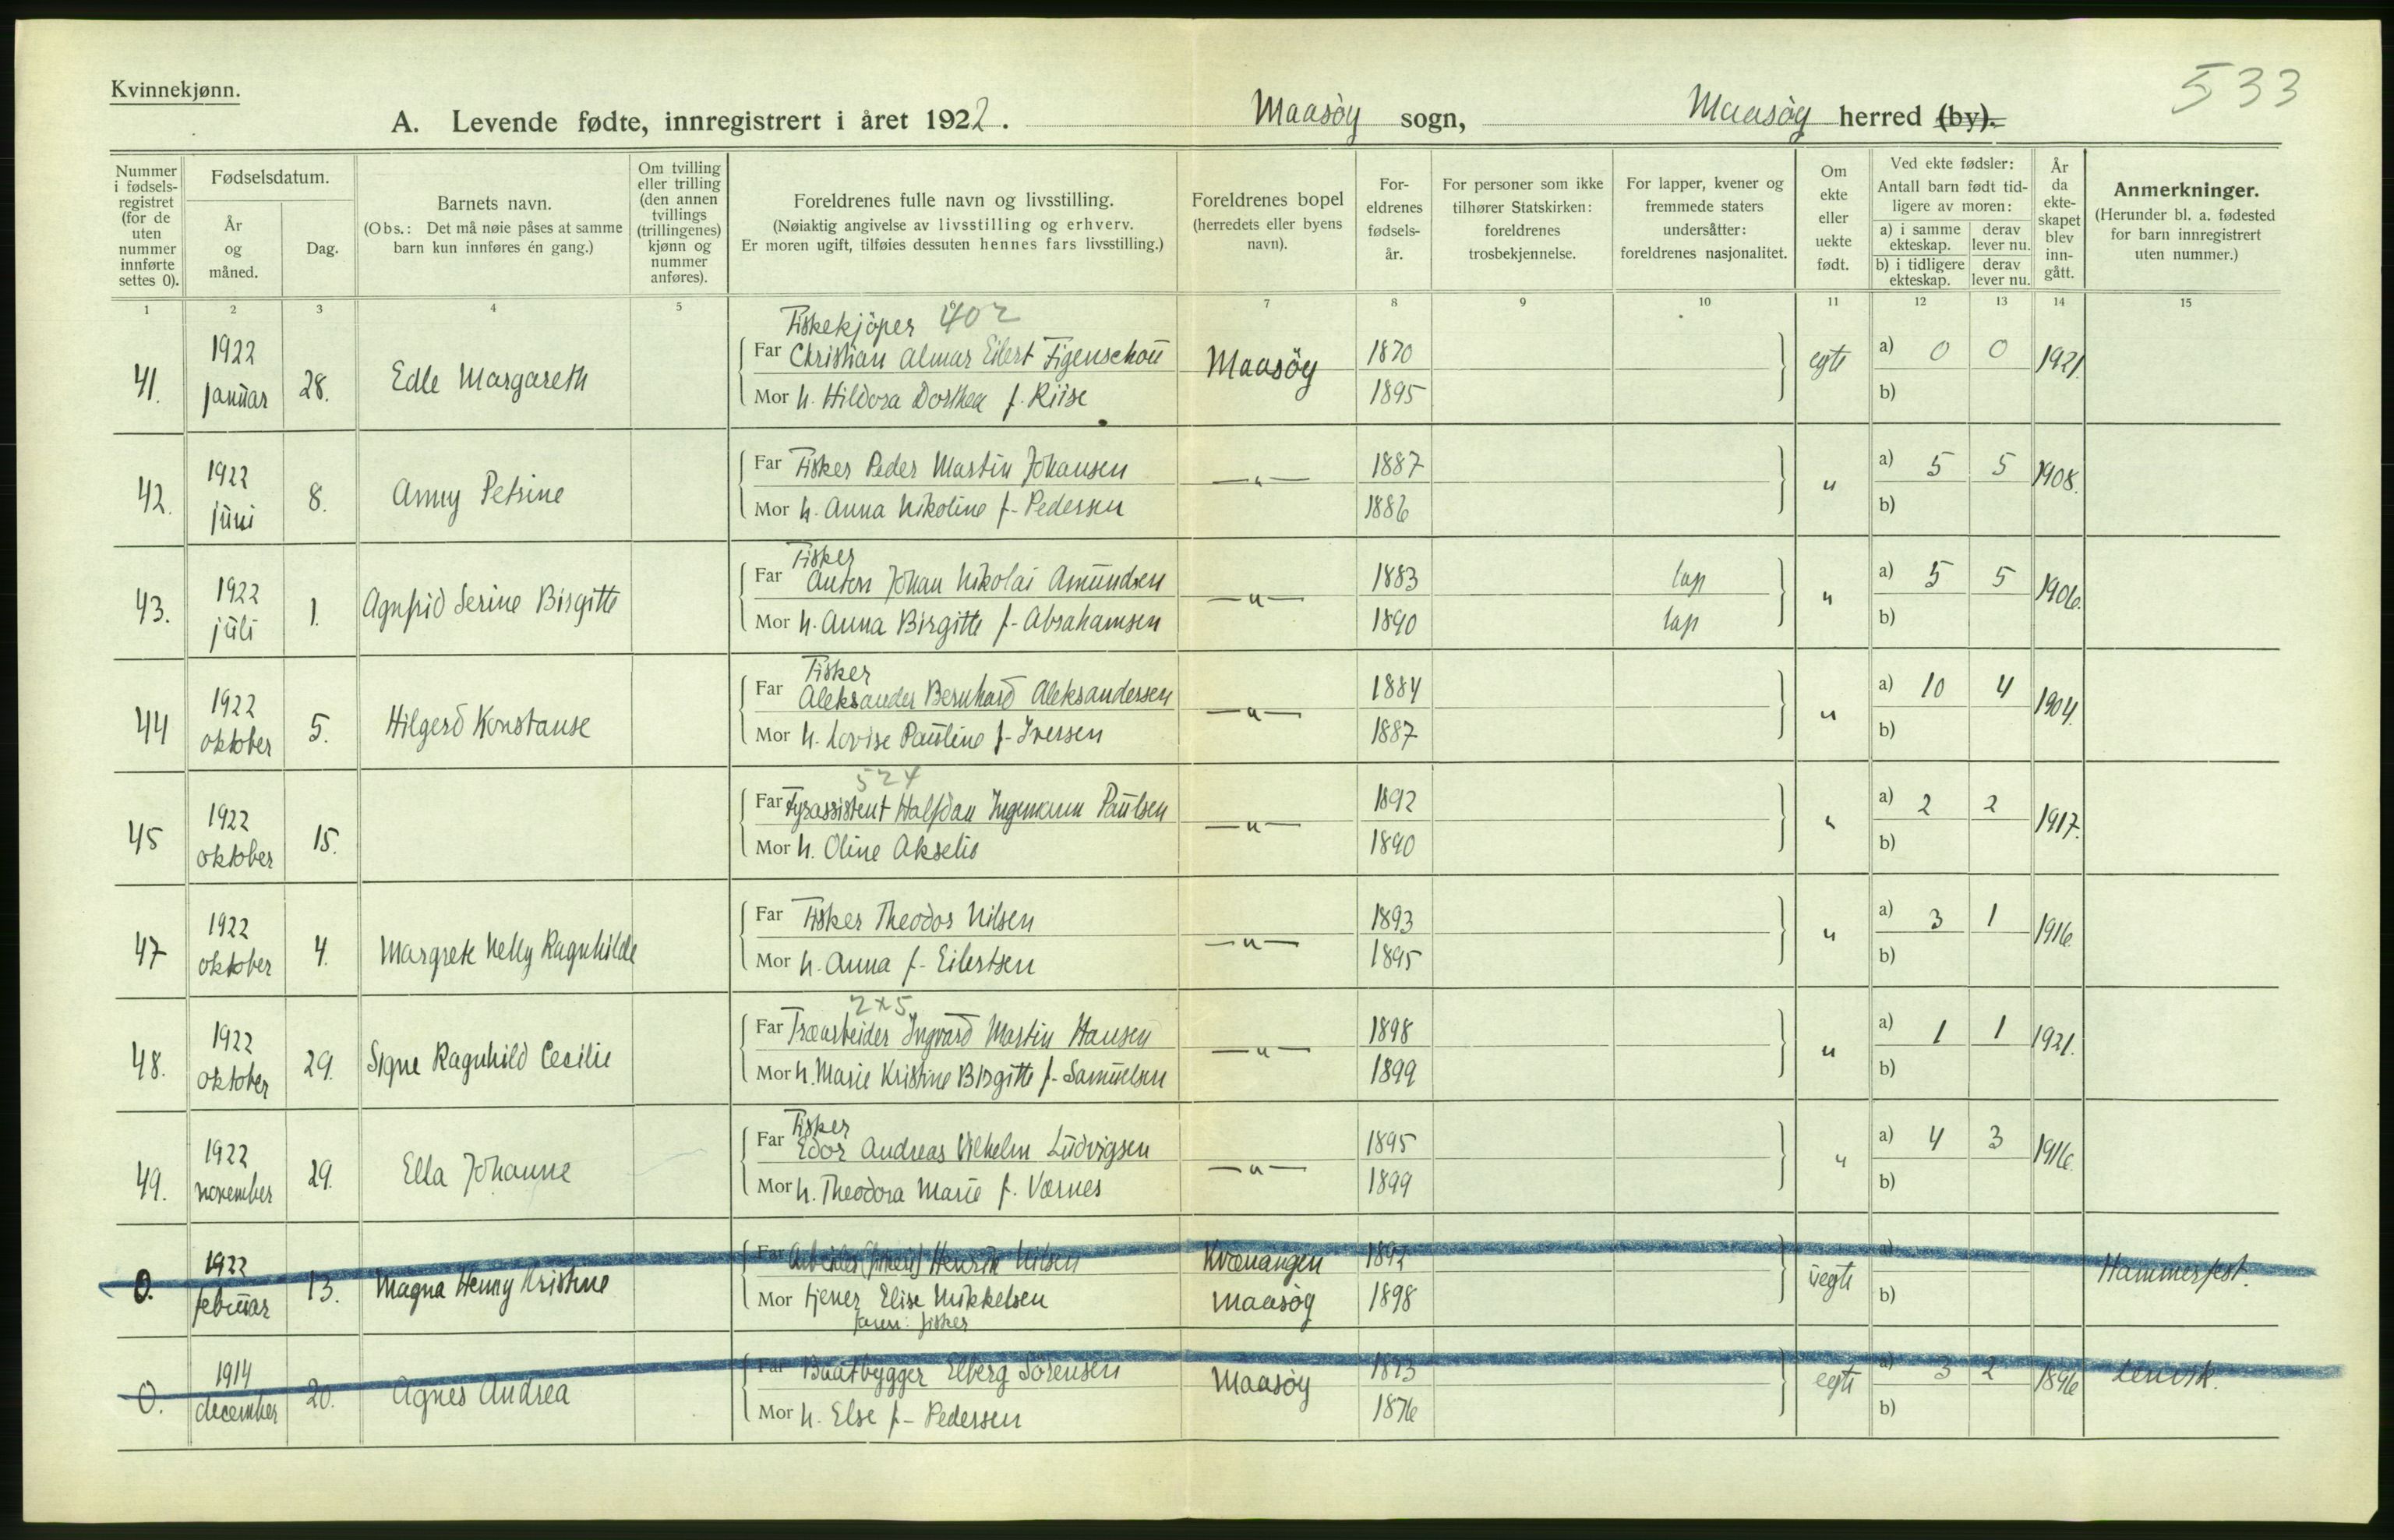 533
Kvinnekjønn.
A. Levende fødte, innregistrert i året 1922. Maasöy sogn, Maasöy herred (by).
Nummer i fødselsregistret (for de uten nummer innførte settes 0).
Fødselsdatum.
År og måned.
Dag.
Barnets navn.
(Obs.: Det må nøie påses at samme barn kun innføres én gang.)
Om tvilling eller trilling (den annen tvillings (trillingenes) kjønn og nummer anføres).
Foreldrenes fulle navn og livsstilling.
(Nøiaktig angivelse av livsstilling og erhverv.
Er moren ugift, tilføies dessuten hennes fars livsstilling.)
Foreldrenes bopel
(herredets eller byens navn).
Foreldrenes fødselsår.
For personer som ikke tilhører Statskirken: foreldrenes trosbekjennelse.
For lapper, kvener og fremmede staters undersåtter: foreldrenes nasjonalitet.
Om ekte eller uekte født.
Ved ekte fødsler:
Antall barn født tidligere av moren:
a) i samme ekteskap. derav lever nu.
b) i tidligere ekteskap. derav lever nu.
År da ekteskapet blev inngått.
Anmerkninger.
(Herunder bl. a. fødested for barn innregistrert uten nummer.)
1 2 3 4 5 6 7 8 9 10 11 12 13 14 15
Fiskekjöper 402
41. 1922 januar 28. Edle Margareth Far Christian Almar Eilert Figenschou Maasöy 1870 egte a) 0 0 1921.
Mor h. Hildora Dorthea f. Riise 1895 b)
42. 1922 juni 8. Anny Petrine Far Fisker Peder Martin Johansen —"— 1887 " a) 5 5 1908.
Mor h. Anna Nikoline f- Pedersen 1886 b)
Fisker
43. 1922 juli 1. Agnfrid Serine Birgitte Far Anton Johan Nikolai Amundsen —"— 1883 lap " a) 5 5 1906.
Mor h. Anna Birgitte f- Abrahamsen 1890 lap b)
Fisker
44 1922 oktober 5. Hilgerd Konstanse Far Aleksander Bernhard Aleksandersen —"— 1884 " a) 10 4 1904.
Mor h. Lovise Pauline f- Iversen 1887 b)
524
45 1922 oktober 15. Far Fyrassistent Halfdan Ingemann Paulsen —"— 1892 " a) 2 2 1917.
Mor h. Oline Akselie 1890 b)
47 1922 oktober 4. Margrete Nelly Ragnhilde Far Fisker Theodor Nilsen —"— 1893 " a) 3 1 1916.
Mor h. Anna f- Eilertsen 1895 b)
2x5
48. 1922 oktober 29. Signe Ragnhild Cecilie Far Træarbeider Ingvard Martin Hansen —"— 1898 " a) 1 1 1921.
Mor h. Marie Kristine Birgitte f- Samuelsen 1899 b)
Fisker
49. 1922 november 29. Ella Johanne Far Edor Andreas Vilhelm Ludvigsen —"— 1895 " a) 4 3 1916.
Mor h. Theodora Marie f. Værnes 1899 b)
0. 1922 februar 13. Magna Henny Kristine Far Arbeider Henrik Nilsen Kvænangen uegte a) Hammerfest.
Mor tjener Elise Mikkelsen Maasöy 1898 b)
faren: fisker
0. 1914 december 20. Agnes Andrea Far Baatbygger Elberg Sörensen Maasöy 1873 egte a) 3 2 1896 Lenvik.
Mor h. Else f- Pedersen 1876 b)